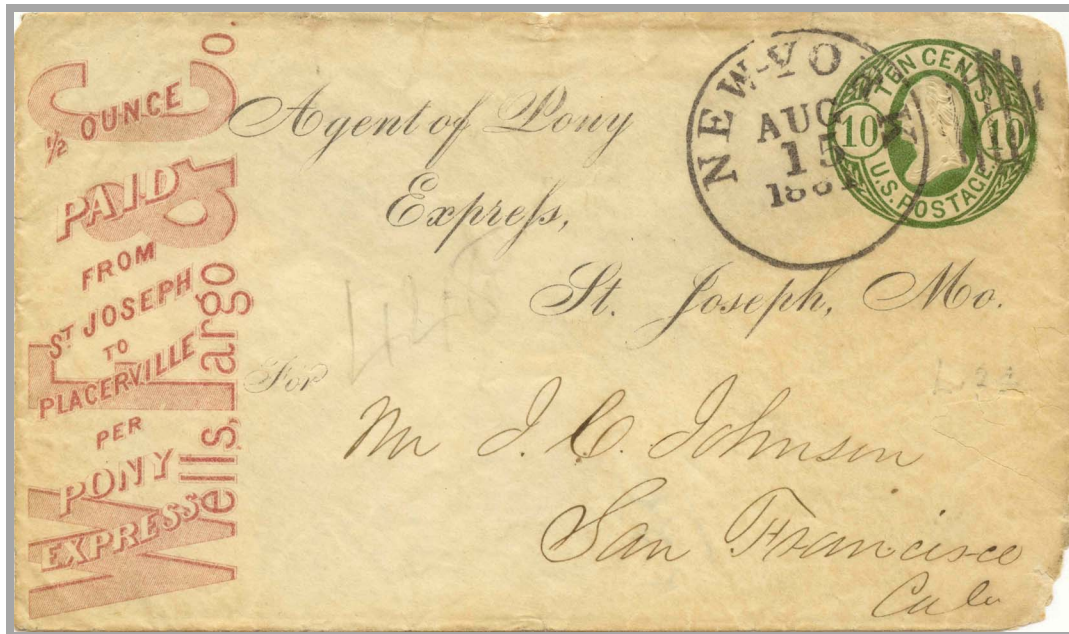 Wells, Fargo & Co.
½ OUNCE
PAID
FROM
ST JOSEPH
TO
PLACERVILLE
PER
PONY
EXPRESS
Agent of Pony
Express,
St. Joseph, Mo.
For
Mr J. C. Johnson
San Francisco
Cala
NEW-YORK
AUG
15
1861
TEN CENTS
10 10
U.S. POSTAGE